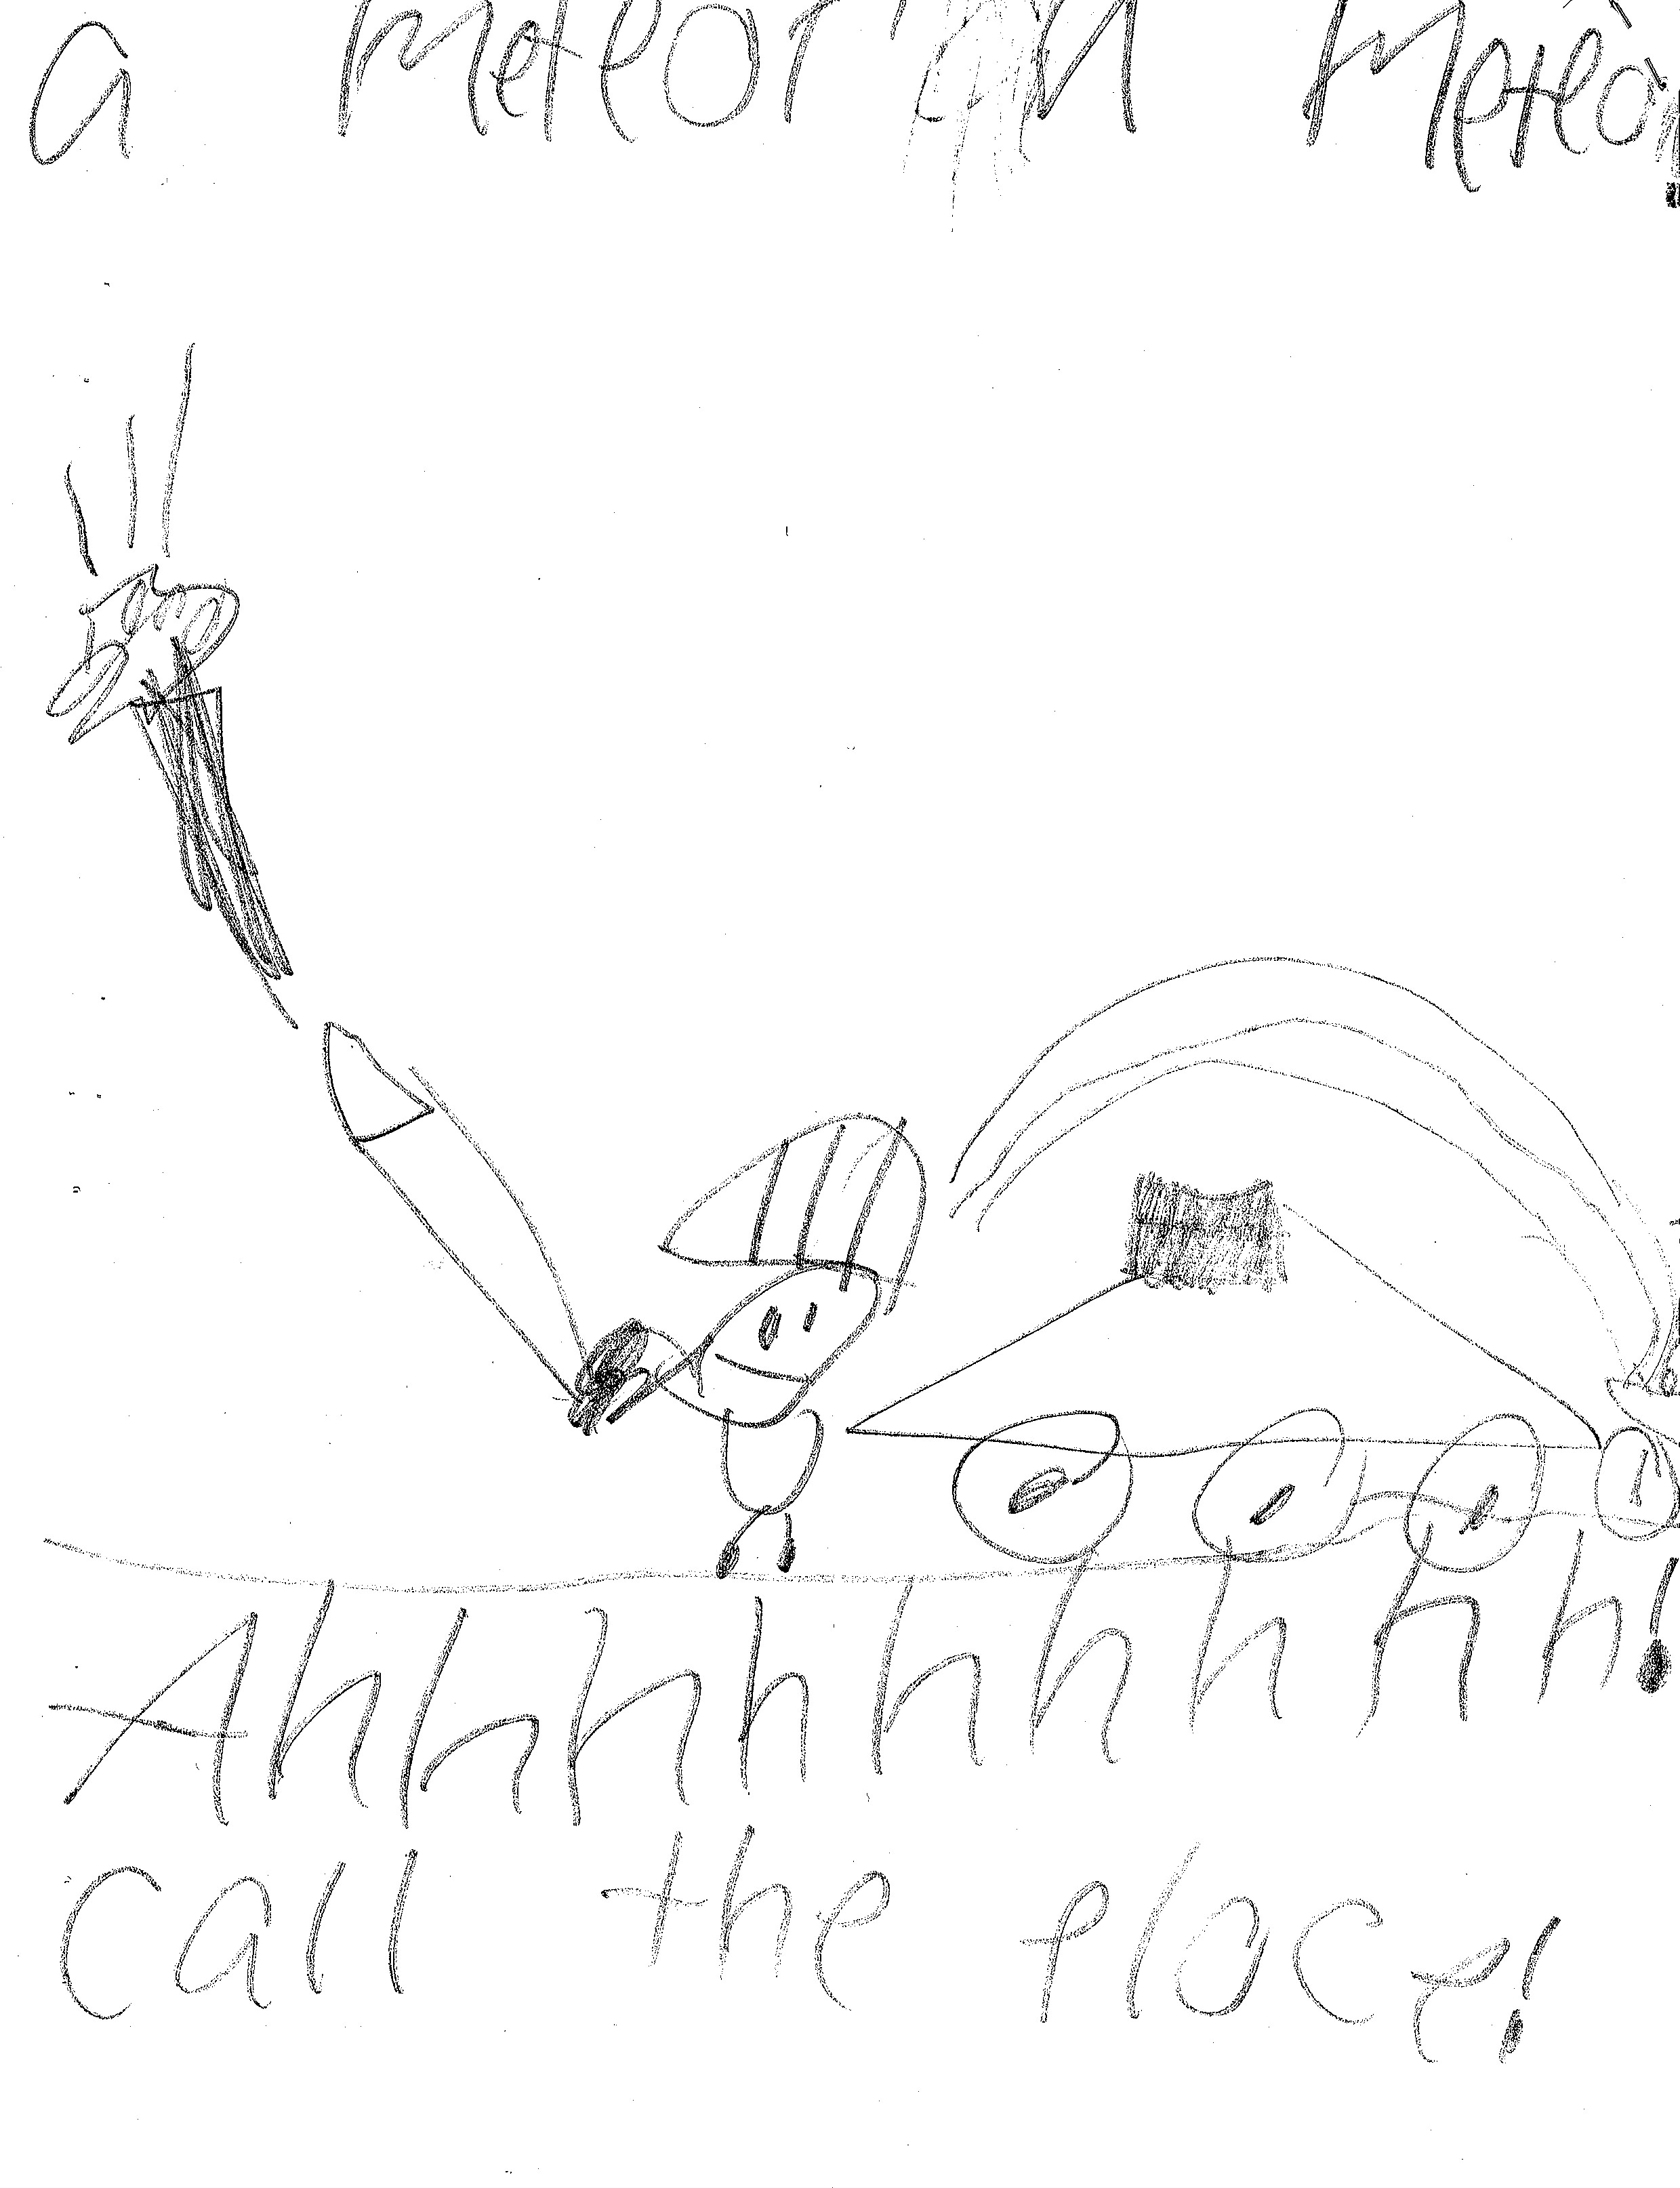 a Meteor Meteor!
Ahhhhhhhhh!
call the ploce!